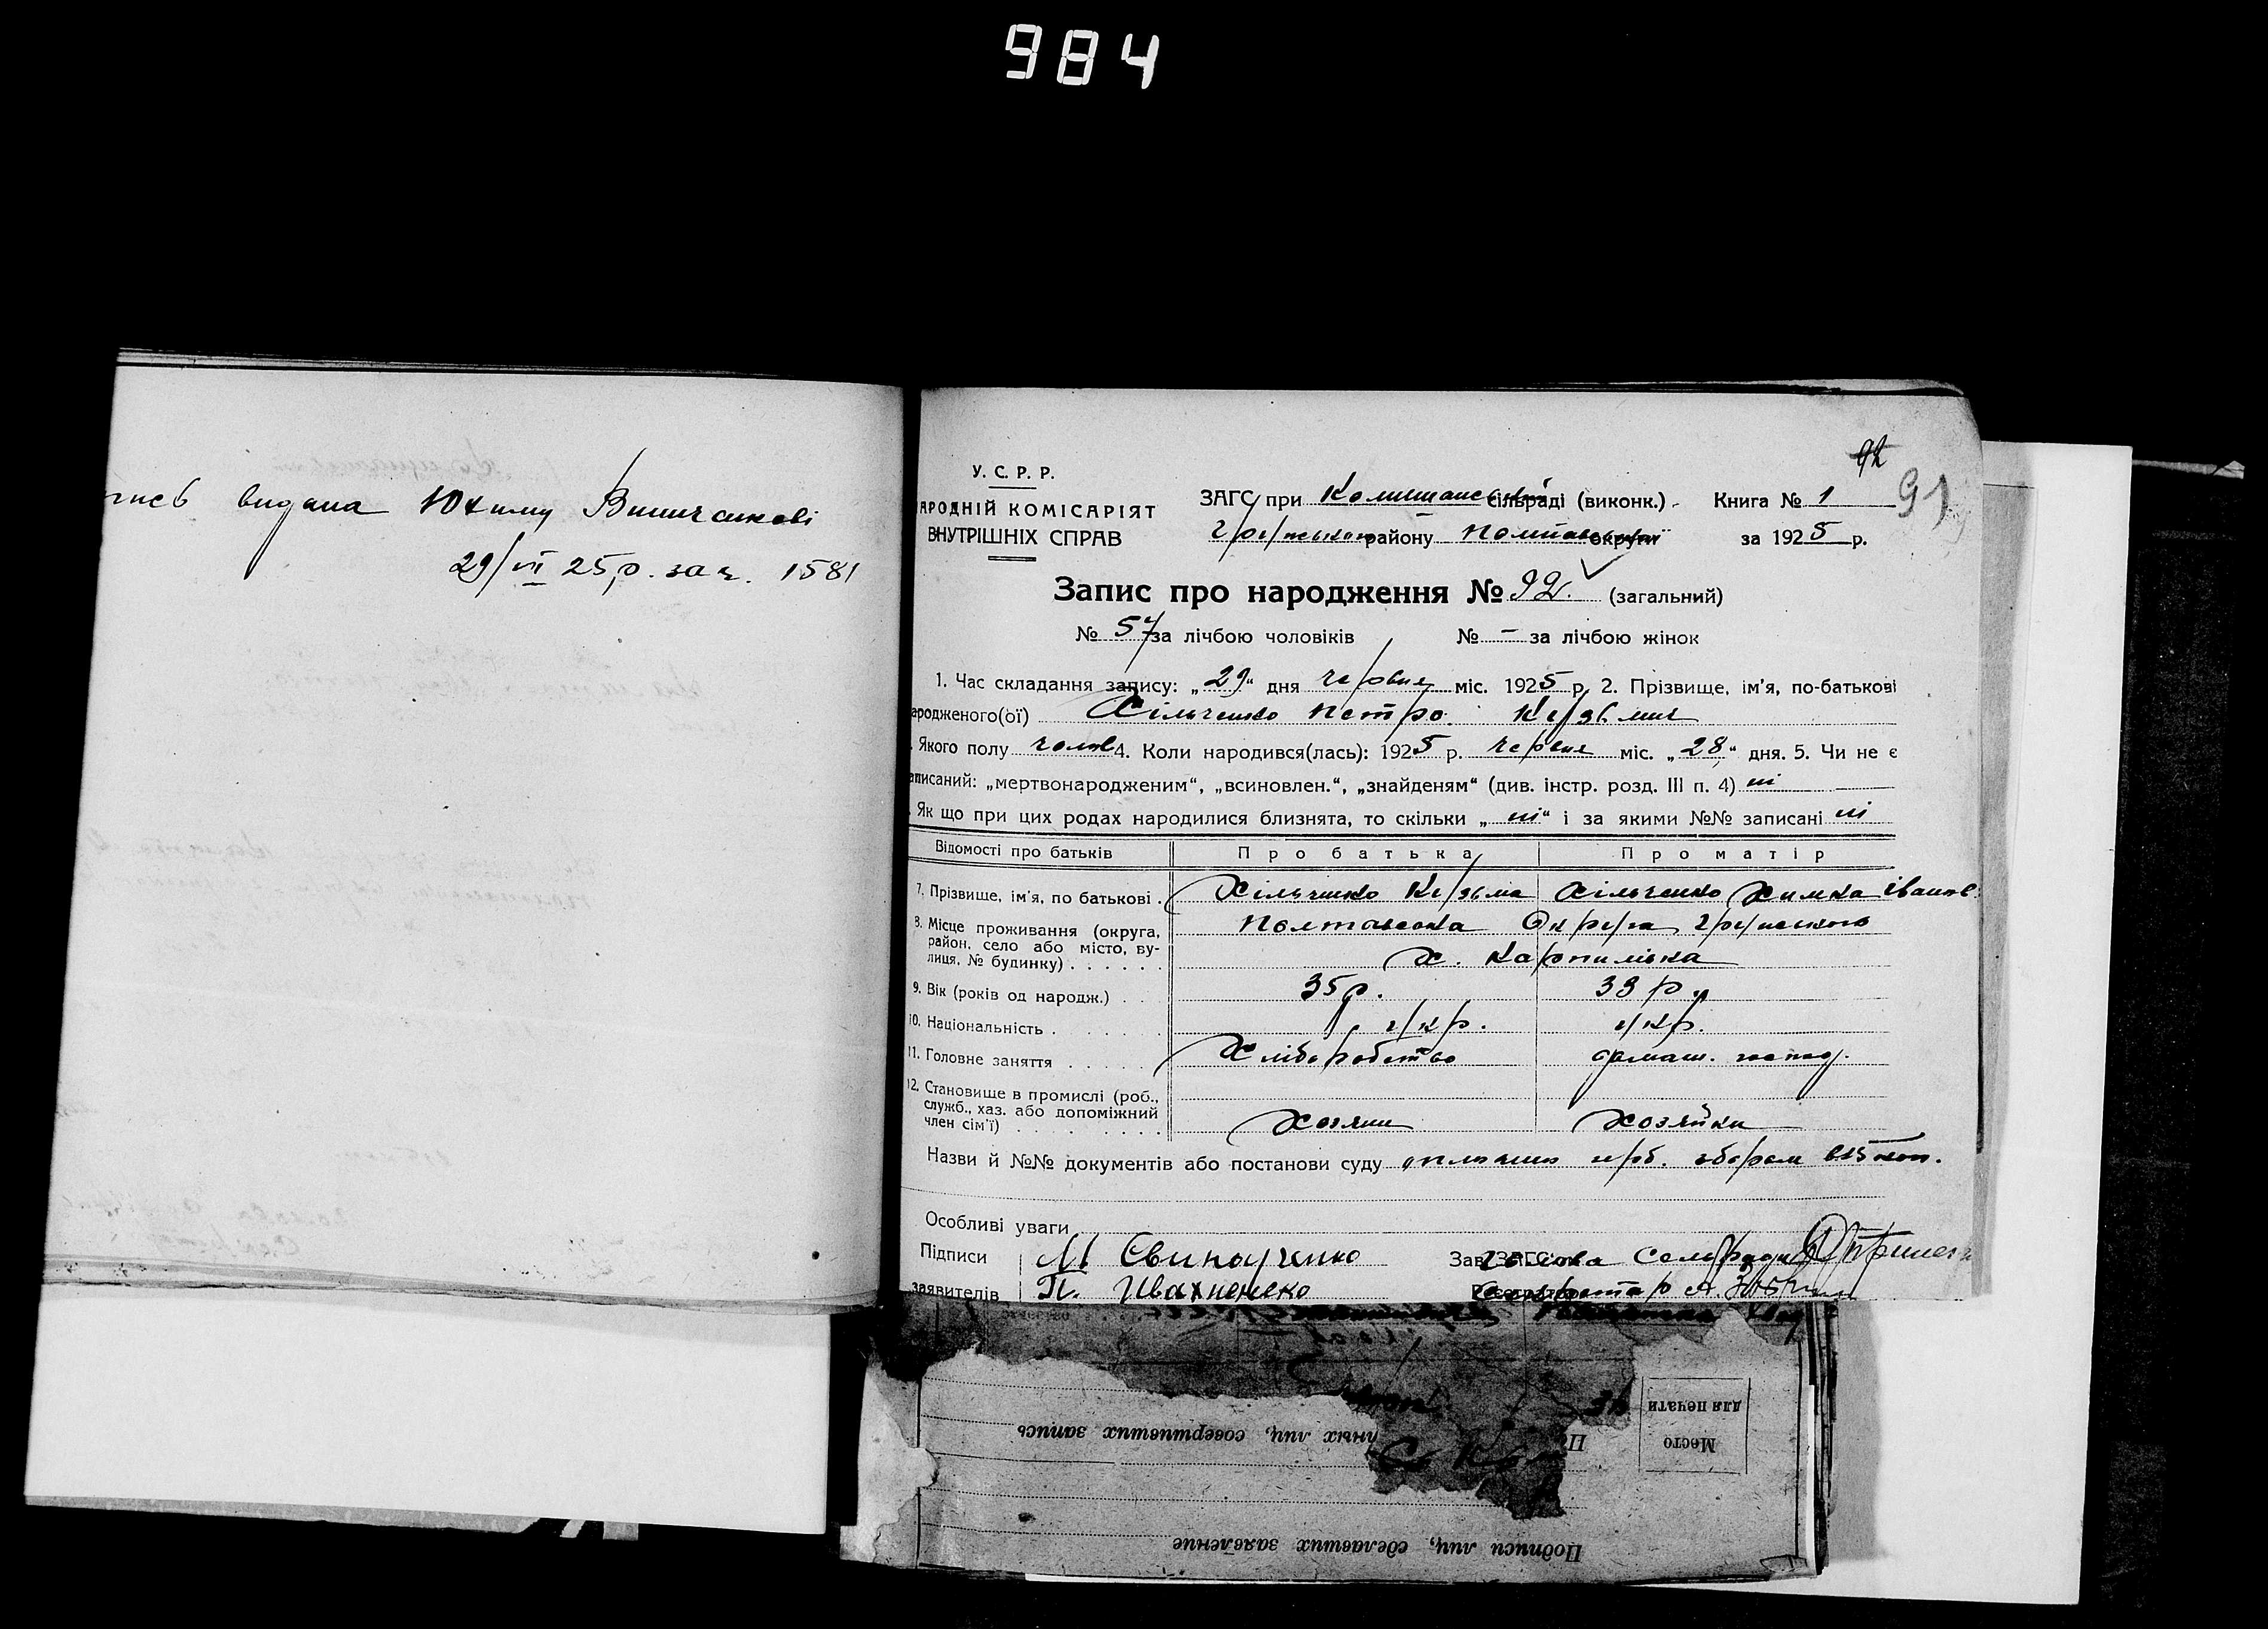 984
видана Юхиму Винниткові
29/VII 25 р. за ч. 1581
92
91
У. С. Р. Р.
АРОДНІЙ КОМІСАРІЯТ
ВНУТРІШНІХ СПРАВ
ЗАГС при сільраді (виконк.) Книга № 1
району округи за 1925 р.
Запис про народження № 92. (загальний)
№ 57 за лічбою чоловіків № – за лічбою жінок
1. Час складання запису: „29“ дня червня міс. 1925 р. 2. Прізвище, ім'я, по-батькові
ародженого(ої) Хільченко Петро Кузьмич
. Якого полу чолов 4. Коли народився(лась): 1925 р. червня міс. „28“ дня. 5. Чи не є
аписаний: „мертвонародженим“, „всиновлен.“, „знайденям“ (див. інстр. розд. III п. 4) ні
. Як що при цих родах народилися близнята, то скільки „ні“ і за якими №№ записані ні
Відомості про батьків Про батька Про матір
7. Прізвище, ім'я, по батькові . Хільченко Кузьма Хільченко Химка Іванов.
8. Місце проживання (округа, район, село або місто, вулиця, № будинку) . . . . . . Полтавська Округа Грунського
х. Карпилівка
9. Вік (років од народж.) . . 35 р. 33 р.
10. Національність . . . . . . укр. укр.
11. Головне заняття . . . . . Хліборобство домаш. господ.
12. Становище в промислі (роб., служб., хаз. або допоміжний член сім'ї) . . . . . . . . Хозяин Хозяйка
Назви й №№ документів або постанови суду оплачено герб. збором 15 коп.
Особливі уваги
Підписи М Свинаренко Зав. ЗАГС: Голова Сельради
заявителів П. Ивахненко Секретарь А.
Место
для печати
ных лиц, совершивших запись
Подписи лиц, сделавших заявление